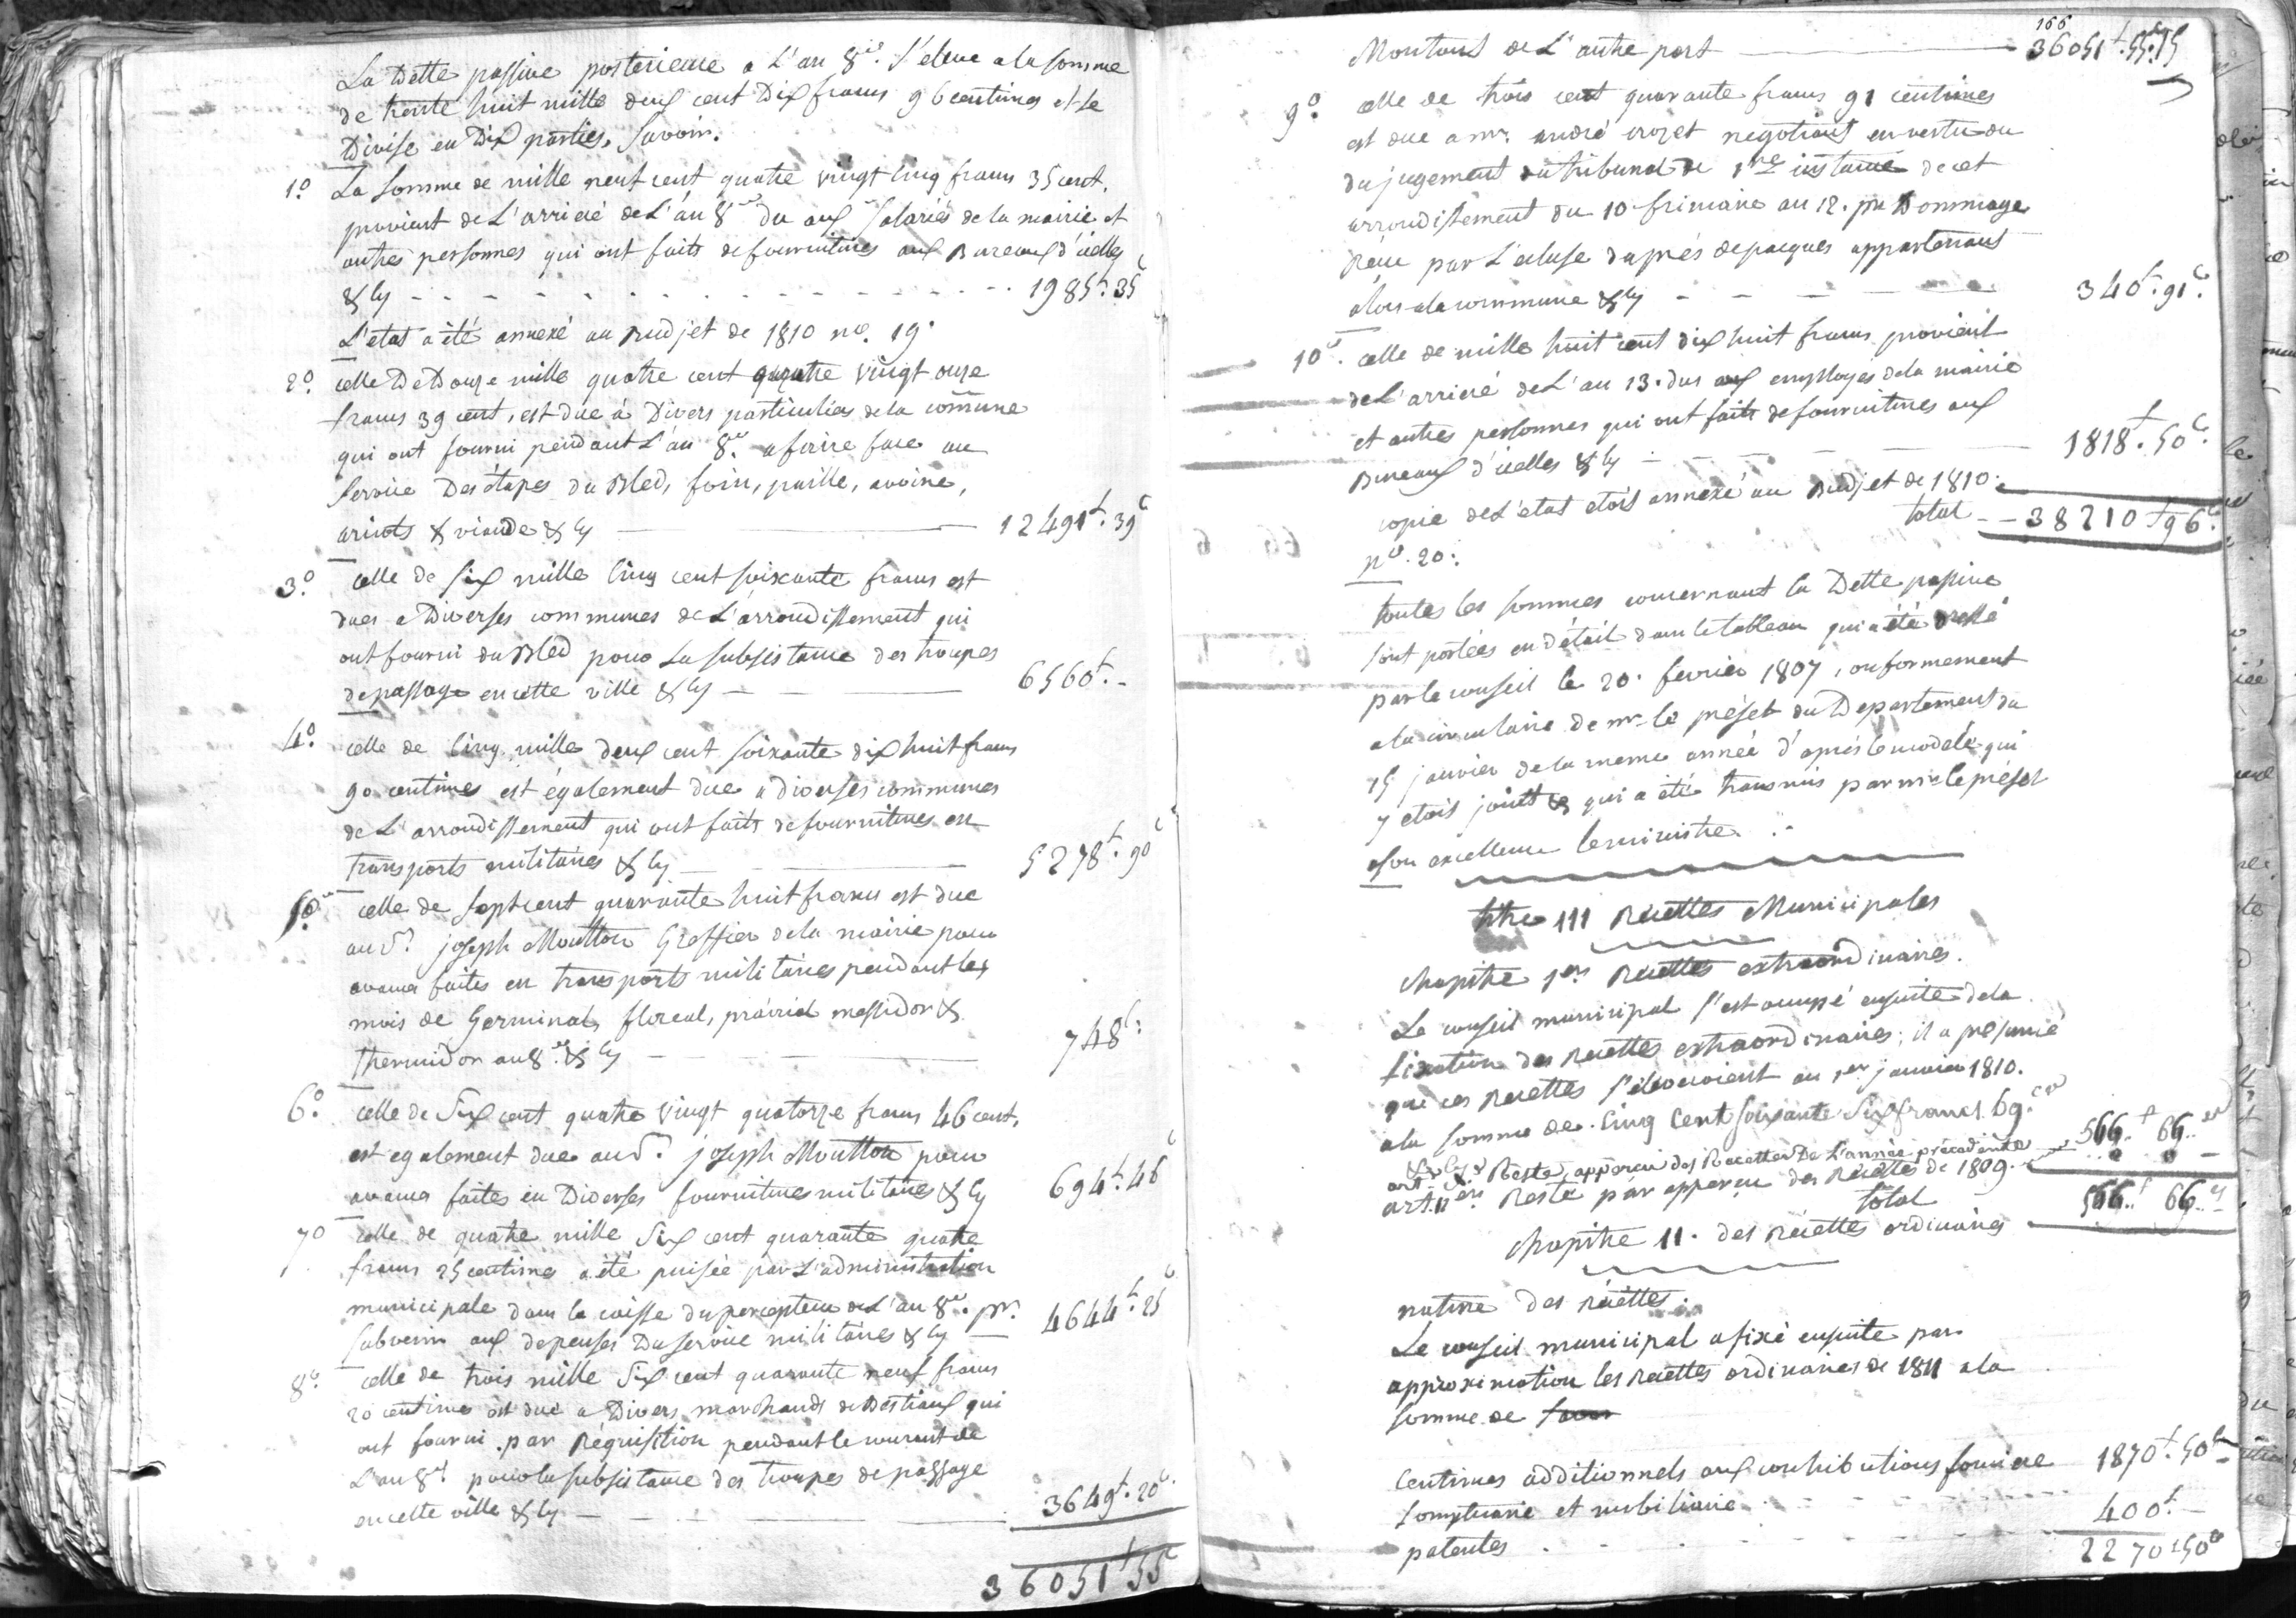 La Dette passive posterieure a L'an 8e. s'eleve a la somme
de trente huit mille deux cent Dix francs 96 centimes et se
Divise en Dix parties. Savoir.
1o La Somme de mille neuf cent quatre vingt cinq francs 35 cent.
provient de L'arrieré de L'an 8e du aux salariés de la mairie et
autres personnes qui ont faits de fournitures aux Bureaux d'icelles
& Cy - - - - - - 1985f. 35c
L'état a été annexé au Budjet de 1810 no. 19.
2o. celle De Douze mille quatre cent quatre vingt onze
francs 39 cent, est due à Divers particuliers de la commune
qui ont fourni pendant L'an 8e. a faire face au
Service Des étapes du Bled, foin, paille, avoine,
& viande & Cy — 12491f. 39c
3o. celle de Six mille Cinq cent soixante francs est
dues a Diverses communes de L'arrondissement qui
ont fourni du Bled pour La subsistance des troupes
de passage en cette ville & Cy — 6560f. -
4o. celle de Cinq mille deux cent soixante dix huit francs
90 centimes est également due a diverses communes
de L'arrondissement qui ont faits de fournitures en
transports militaires & Cy — 5278f. 90c
5o. celle de Sept cent quarante huit francs est due
au Sr. joseph Moutton Greffier de la mairie pour
avances faites en transports militaires pendant les
mois de Germinal, floreal, prairial messidor &
thermidor an 8e. & Cy — 748f.
6o. celle de Six cent quatre vingt quatorze francs 46 cent.
est egalement due au Sr. joseph Moutton pour
avances faites en Diverses fournitures militaires & Cy 694f. 46c
7o celle de quatre mille Six cent quarante quatre
francs 25 centimes a été puisée par L'administration
municipale dans la caisse du percepteur de L'an 8e. pr.
subvenir aux depenses Du service militaires & Cy — 4644f. 25c
8o. celle de trois mille Six cent quarante neuf francs
20 centimes est due a Divers marchands de Bestiaux qui
ont fourni par Réquisition pendant le courant de
L'an 8e pour la subsistance des troupes de passage
en cette ville & Cy — 3649f. 20c.
36051f 55c
166
Montant de L'autre part — 36051f. 55c.
9o. celle de trois cent quarante francs 91 centimes
est due a mr. andré crozet negotiant en vertu du
du jugement du tribunal de 1re instance de cet
arrondissement du 10 frimaire an 12. pr Dommage
par L'ecluse du prés de pacques appartenant
alors a la commune & Cy — 340f. 91c.
10o. celle de mille huit cent dix huit francs provient
de L'arrieré de L'an 13. dus aux employés de la mairie
et autres personnes qui ont faits de fournitures aux
Bureaux d'icelles & Cy — 1818f. 50c.
copie de L'etat etois annexé au Budjet de 1810.
total — 38210f 96c.
no. 20.
toutes les sommes concernant la Dette passive
sont portées en détail dans le tableau qui a été dressé
par le conseil le 20. fevrier 1807, conformement
a la circulaire de mr. le préfet du Departement du
15 janvier de la meme année d'après le modele qui
y etois joint & qui a été transmis par mr. le préfet
a son excellence le ministre.
titre 111 Recettes Municipales
chapitre 1er Recettes extraordinaires.
Le conseil municipal s'est occuppé ensuite de la
fixation des Recettes extraordinaires; il a présumé
que ces Recettes s'eleveroient au 1er janvier 1810.
a la somme de. Cinq Cent Soixante Six francs 69. ces
& Cy 566.f 66..es
art. 1er. Reste, apperçu des Recettes De L'année précédente
art. 11en. Resté par apperçu des Recettes de 1809.
total 566..f 66..es
chapitre 11. des Récettes ordinaires
nature des Récettes.
Le conseil municipal a fixé ensuite par
approximation les Recettes ordinaires de 1811 a la
somme de
Centimes additionnels aux contributions fonciere
somptuaire et mobiliaire - - - 1870f. 50c
patentes - - - 400f. -
2270f 50c